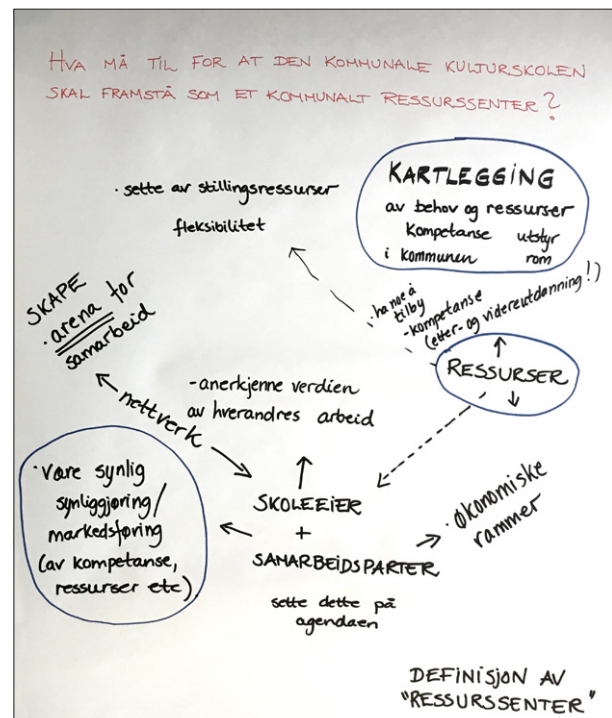 HVA MÅ TIL FOR AT DEN KOMMUNALE KULTURSKOLEN
SKAL FRAMSTÅ SOM ET KOMMUNALT RESSURSSENTER?
KARTLEGGING
av behov og ressurser
kompetanse utstyr
i kommunen rom
· sette av stillingsressurser
fleksibilitet
SKAPE
· arena for
samarbeid
· ha noe å
tilby
- kompetanse
(etter- og videreutdanning!)
RESSURSER
nettverk
- anerkjenne verdien
av hverandres arbeid
· Være synlig
synliggjøring/
markedsføring
(av kompetanse,
ressurser etc)
SKOLEEIER
+
SAMARBEIDSPARTER
sette dette på
agendaen
· økonomiske
rammer
DEFINISJON AV
"RESSURSSENTER"